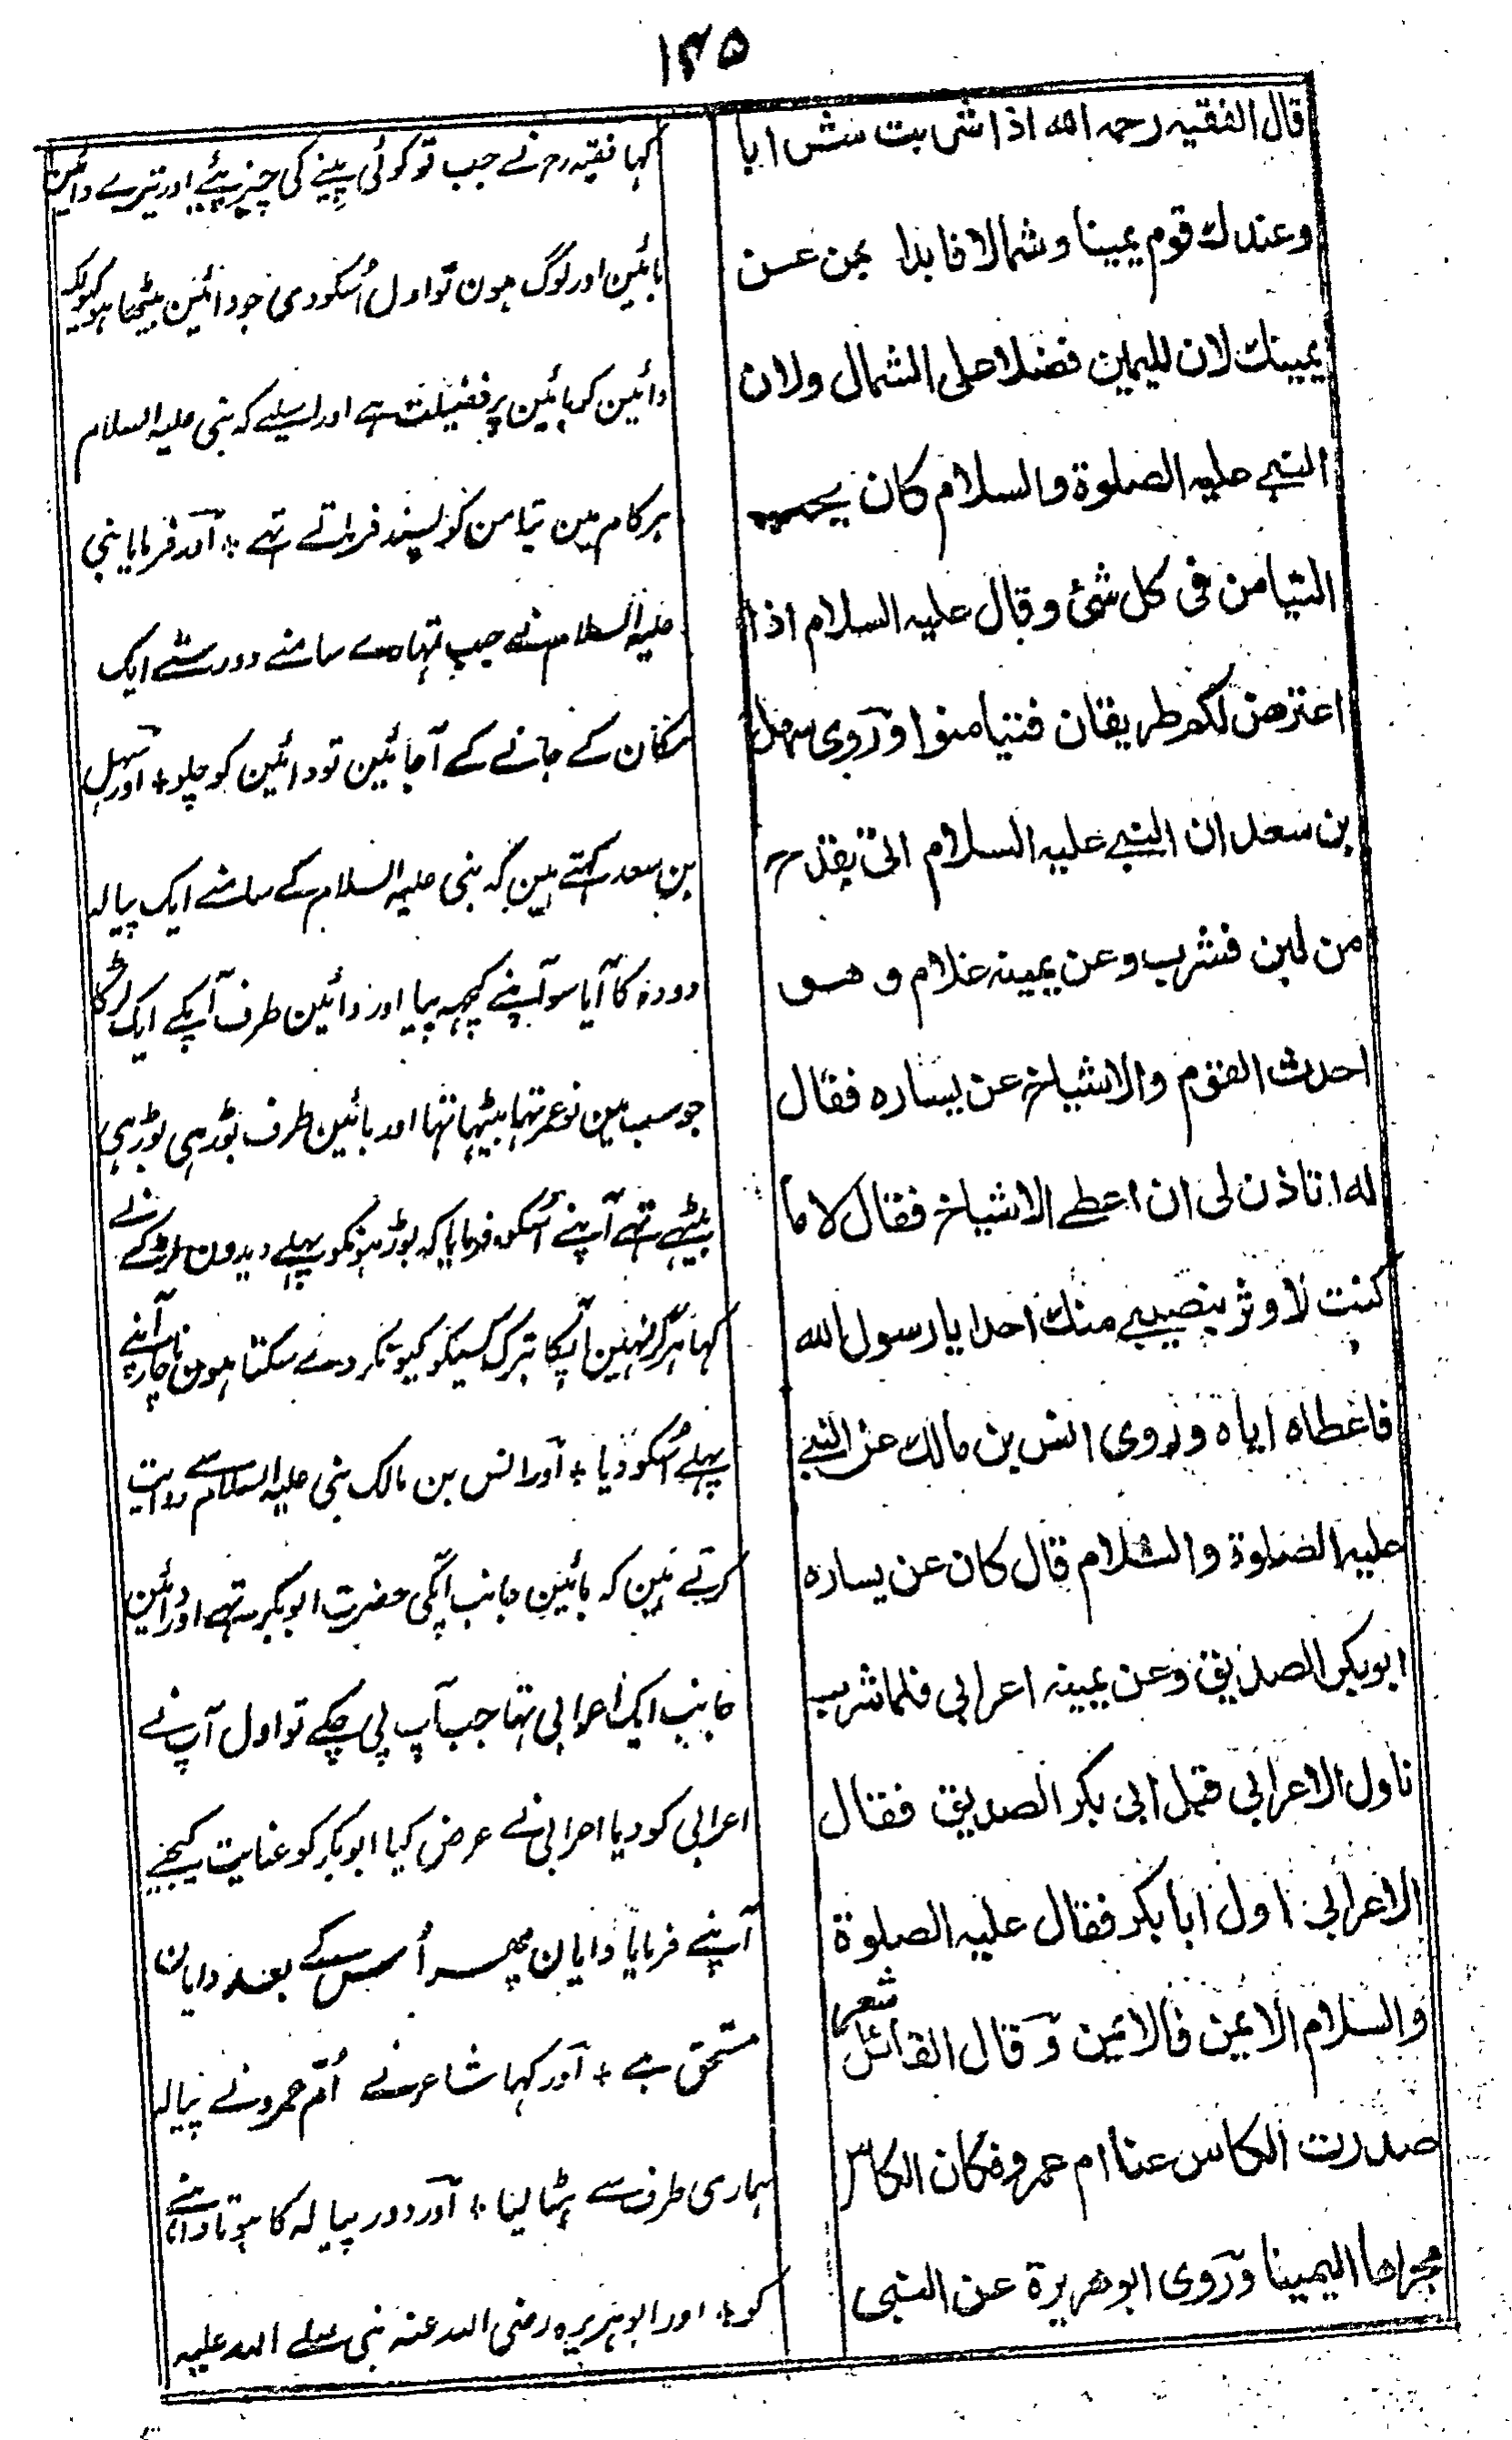 ۱۴۵
قال الفقيه رحمه الله اذا شربت شرابا
وعندك قوم يمينا وشمالا فابدا بمن عن
يمينك لان لليمين فضلا على الشمال ولان
النبي عليه الصلوة والسلام كان يحب
التيامن فى كل شئ وقال عليه السلام اذا
اعترض لكم طريقان فتيامنوا وروى سهل
بن سعد ان النبي عليه السلام اتى بقدح
من لبن فشرب وعن يمينه غلام وهو
احدث القوم والاشياخ عن يساره فقال
له اتاذن لى ان اعطى الاشياخ فقال لا ما
كنت لاوثر بنصيبي منك احدا يا رسول الله
فاعطاه اياه وروى انس بن مالك عن النبي
عليه الصلوة والسلام قال كان عن يساره
ابوبكر الصديق وعن يمينه اعرابي فلما شرب
ناول الاعرابي قبل ابى بكر الصديق فقال
الاعرابي اول ابا بكر فقال عليه الصلوة
والسلام الايمن فالايمن وقال القائل شعر
صددت الكاس عنا ام عمرو وكان الكاس
مجراها اليمينا وروى ابوهريرة عن النبى
کہا فقیہ رح نے جب تو کوئی پینے کی چیز پئے اور تیرے دائین
بائین اور لوگ ہون تو اول اُسکو دی جو دائین بیٹھا ہو کیونکہ
دائین کو بائین پر فضیلت ہے اور اسلیے کہ نبی علیہ السلام
ہر کام مین تیامن کو پسند فرماتے تہے ؞ اور فرمایا نبی
علیہ السلام نے جب تمہارے سامنے دو رستے ایک
مکان کے جانے کے آجائین تو دائین کو چلو ؞ اور سہل
بن سعد کہتے ہین کہ نبی علیہ السلام کے سامنے ایک پیالہ
دودہ کا آیا سو آپنے کچہہ پیا اور دائین طرف آپکے ایک لڑکا
جو سب مین نوعمر تہا بیٹہا تہا اور بائین طرف بوڑہی بوڑہی
بیٹہے تہے آپنے اُسکو فرمایا کہ بوڑہونکو پہلے دیدون لڑکے نے
کہا ہرگز نہین آپکا تبرک کسیکو کیونکر دے سکتا ہون ناچار آپنے
پہلے اُسکو دیا ؞ اور انس بن مالک نبی علیہ السلام سے روایت
کرتے ہین کہ بائین جانب آپکی حضرت ابوبکر تہے اور دائین
جانب ایک اعرابی تہا جب آپ پی چکے تو اول آپ نے
اعرابی کو دیا اعرابی نے عرض کیا ابوبکر کو عنایت کیجئے
آپنے فرمایا دایان پھر اُس کے بعد دایان
مستحق ہے ؞ اور کہا شاعر نے اُم عمرو نے پیالہ
ہماری طرف سے ہٹا لیا ؞ اور دور پیالہ کا ہوتا داہنے
کو ؞ اور ابو ہریرہ رضی اللہ عنہ نبی صلے اللہ علیہ